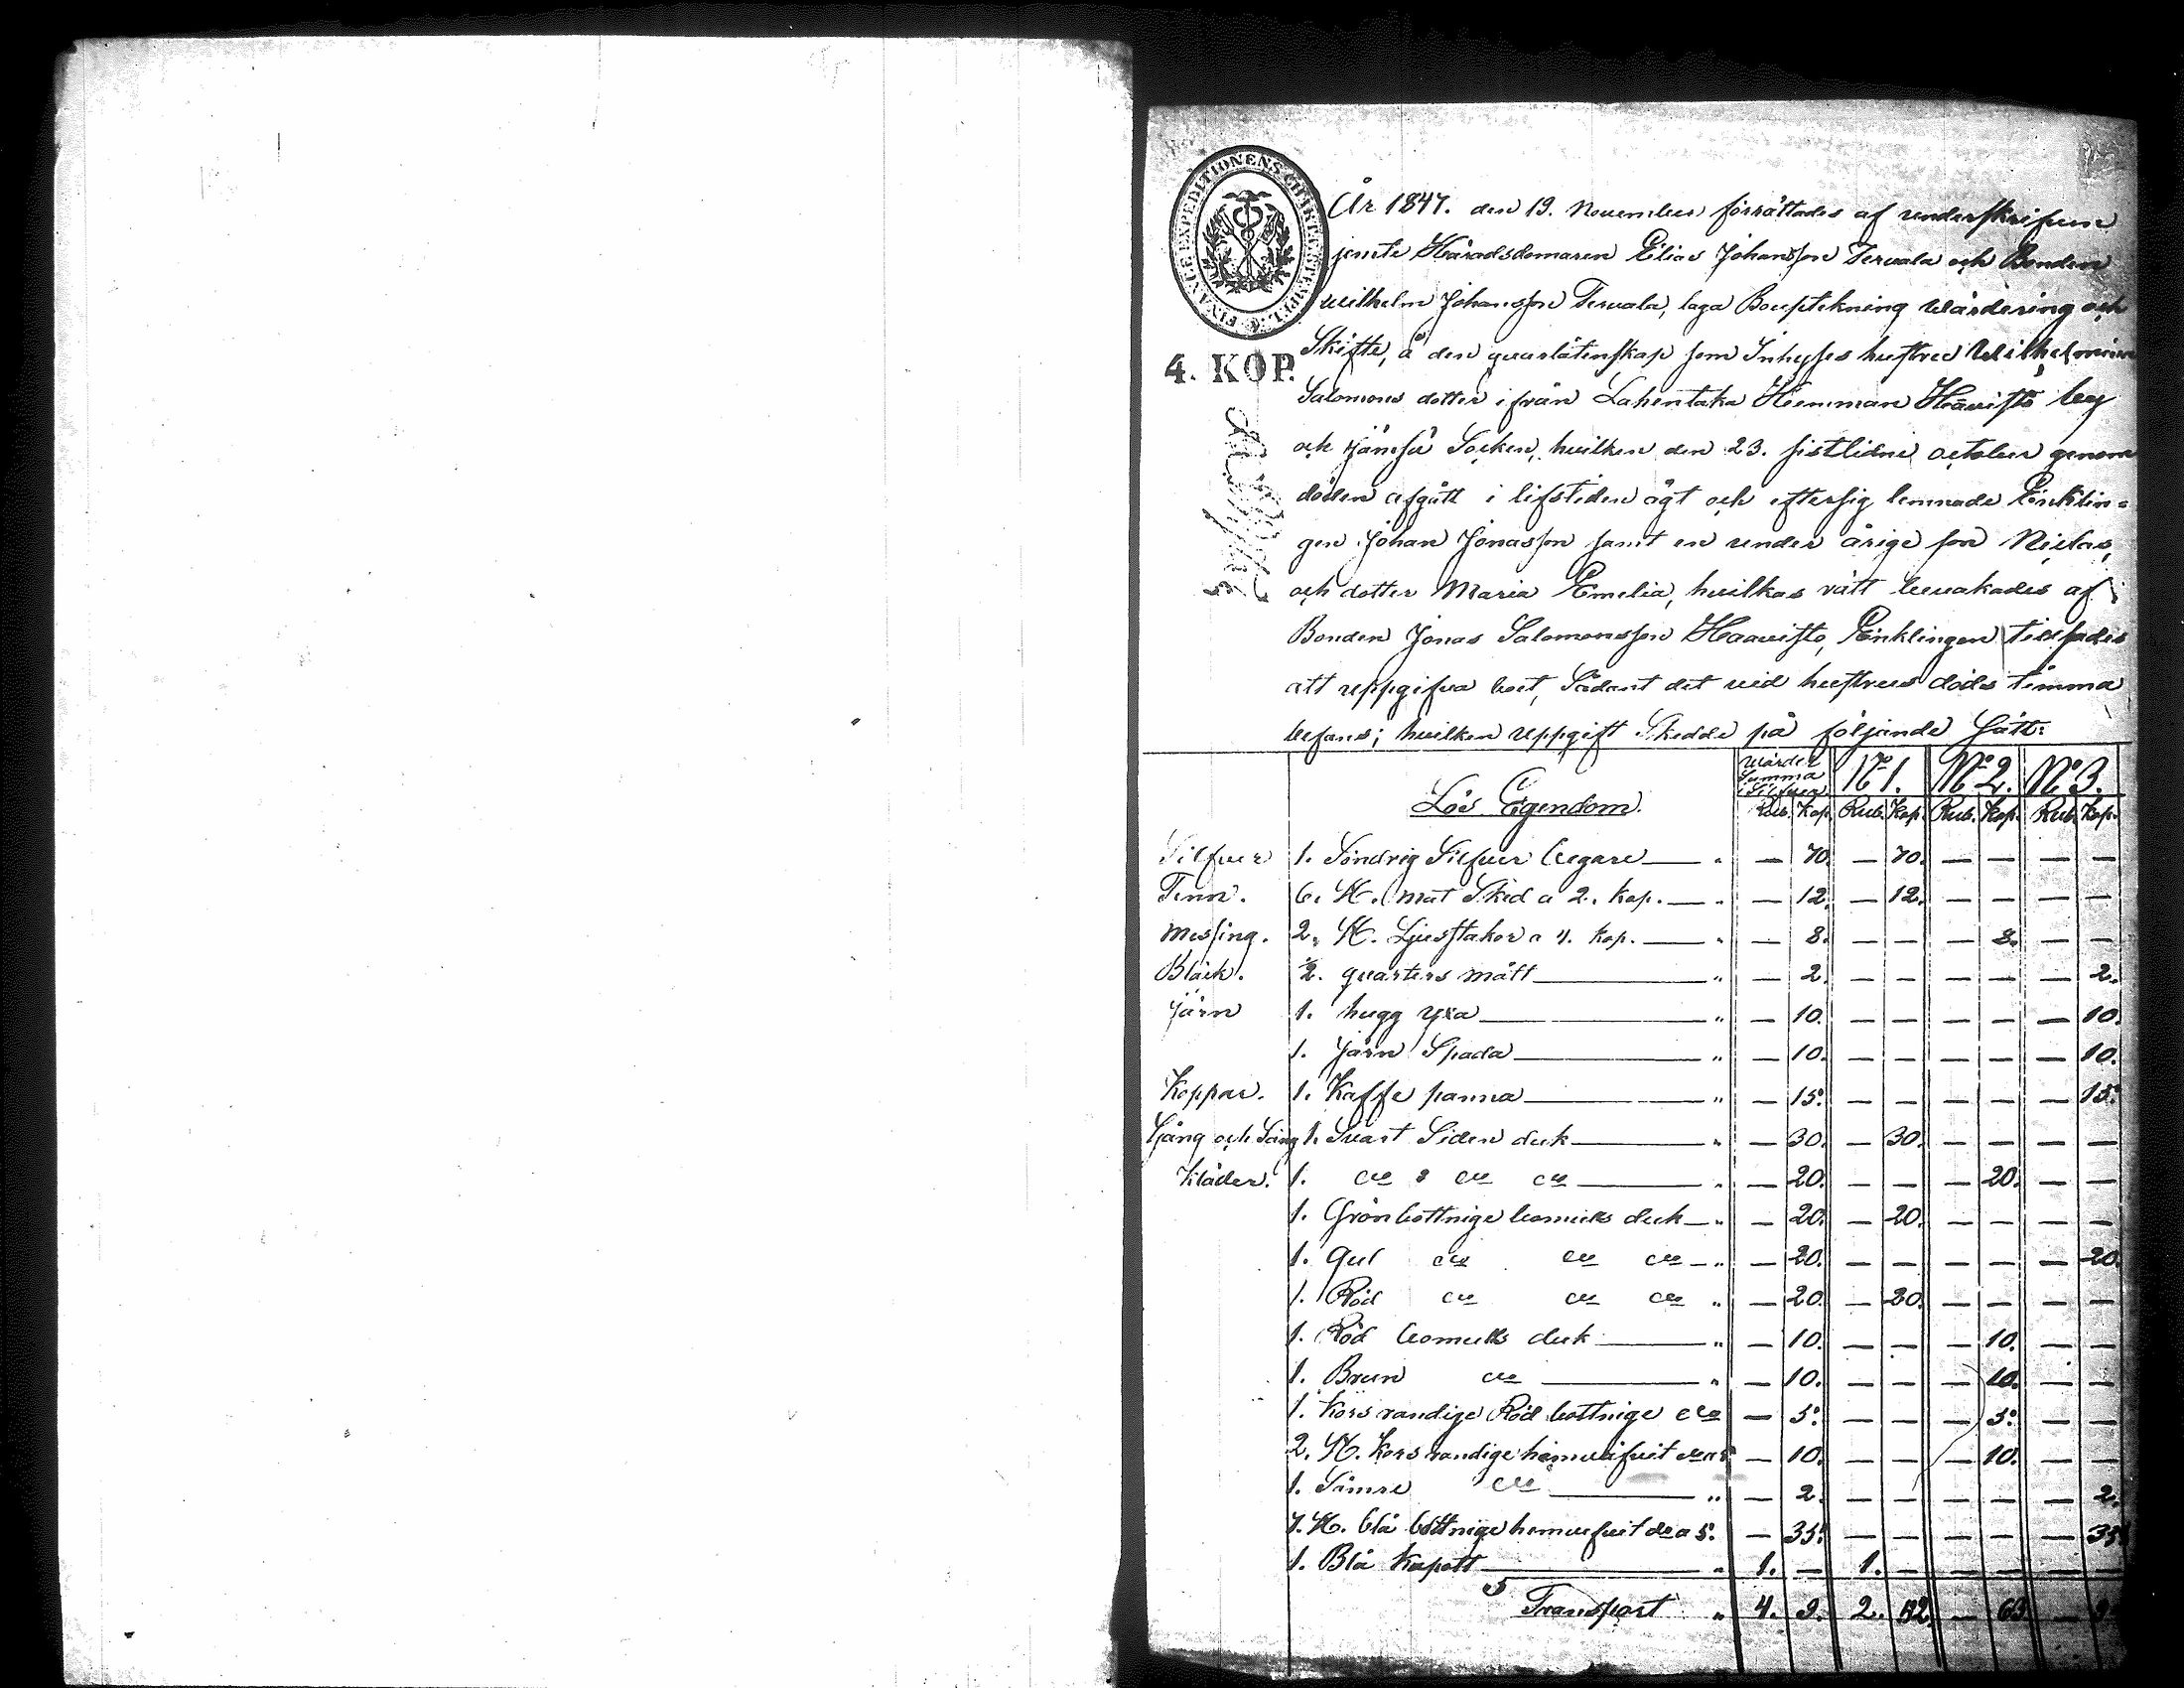 FINANCE EXPEDITIONENS CHARTÆ STEMPEL
4. KOP.
År 1847. den 19. November förrättades af underskrifven
jemte Häradsdomaren Elias Johansson Tervala och Bonden
Wilhelm Johansson Tervala, laga Bouptekning Värdering och
Skifte, å den qvarlåtenskap som Inhyses hustru Wilhelmina
Salomons dotter ifrån Lahentaka Hemman Haavisto by
och Jämsä Socken, hvilken den 23. sistlidne october genom
döden afgått i lifstiden ägt och eftersig lemnade Enklin=
gen Johan Jonasson samt en under årige son Niclas,
och dotter Maria Emelia, hvilkas rätt bevakades af
Bonden Jonas Salomonsson Haavisto, Enklingen tillsades
att uppgifva boet, Sådant det vid hustrus döds timma
befans; hvilken uppgift Skedde på följande Sätt:
Lös Egendom. Värder Summa i Silfver N:o 1. N:o 2. N:o 3.
Rub. Kop. Rub. Kop. Rub. Kop. Rub. Kop.
Silfver 1. Söndrig Silfver begare " — 70. — 70. — — — —
Tenn. 6. St. mat Sked a 2. Kop. " — 12. — 12. — — — —
Messing. 2. St. Ljusstakor a 4. Kop. " — 8. — — — 8. — —
Bläck. ½. quarters mått " — 2. — — — — — 2.
Järn 1. hugg yxa " — 10. — — — — — 10.
1. Järn Spada " — 10. — — — — — 10.
Koppar. 1. Kaffe panna " — 15. — — — — — 15.
Gång och Säng 1. Svart Siden duk " — 30. — 30. — — — —
Kläder. 1. do do do " — 20. — — — 20. — —
1. Grön bottnige bomulls duk " — 20. — 20. — — — —
1. Gul do do do " — 20. — — — — — 20.
1. Röd do do do " — 20. — 20. — — — —
1. Röd bomulls duk " — 10. — — — 10. — —
1. Brun do " — 10. — — — 10. — —
1. Kors randige Röd bottnige do — 5. — — — 5. — —
2. St. Kors randige hemväfvit do a 5. — 10. — — — 10. — —
1. Sämre do " — 2. — — — — — 2.
7. St. blå bottnige hemväfvit do a 5. — 35. — — — — — 35.
1. Blå Kapott " 1. — 1. — — — — —
Transport " 4. 9. 2. 52. — 63. —